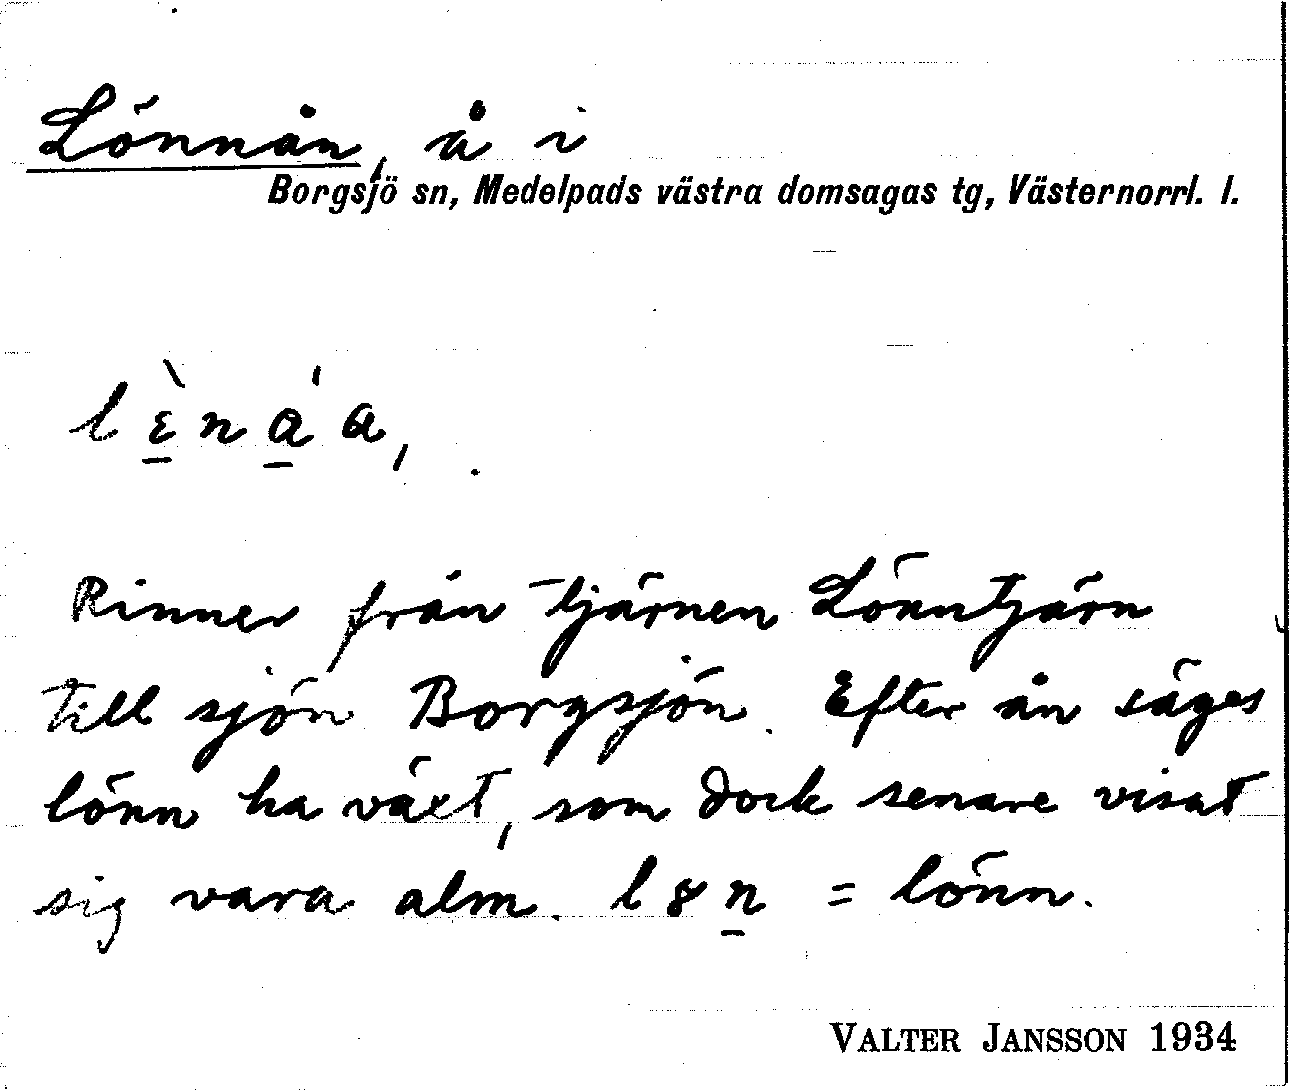 Lönnån, å i
Borgsjö sn, Medelpads västra domsagas tg, Västernorrl. l.
lɛ̀na̍a,
Rinner från tjärnen Lönntjärn
till sjön Borgsjön. Efter ån säges
lönn ha växt, som dock senare visat
sig vara alm. l8n = lönn.
VALTER JANSSON 1934